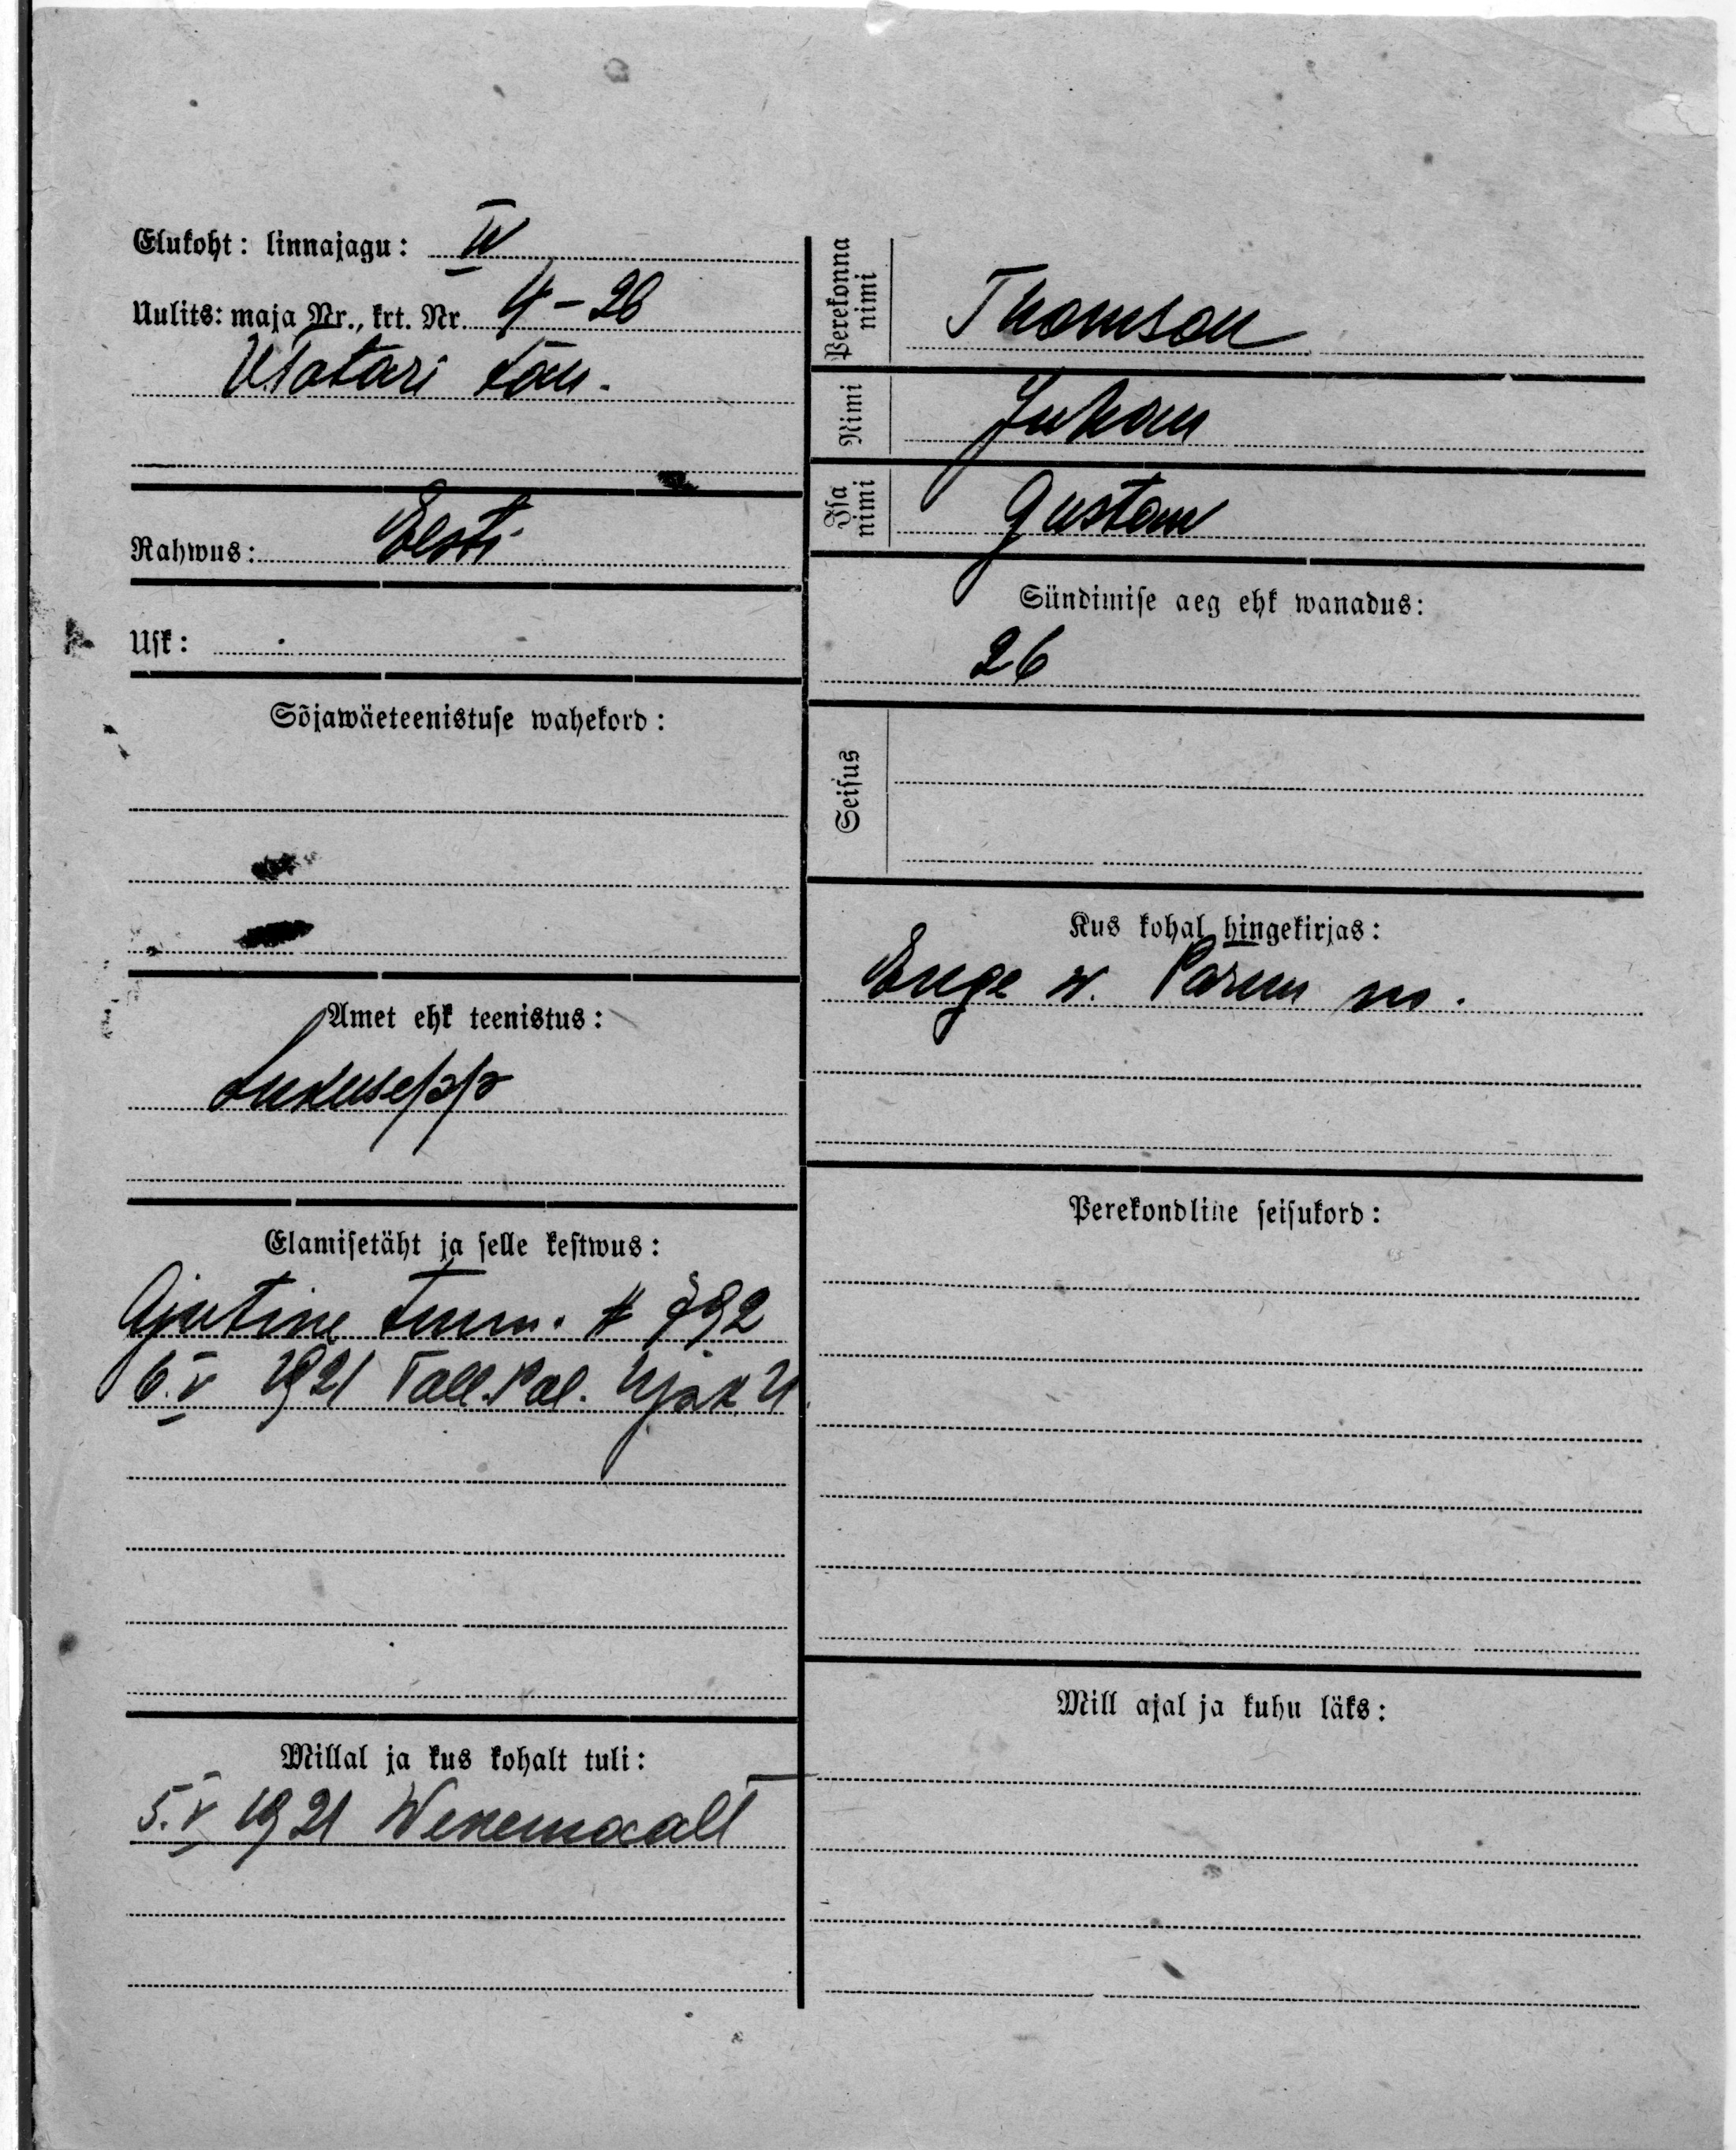 Elukoht: linnajagu: IV
Uulits: maja Nr., krt. Nr. 4-26
W Tatari tän.
Rahwus: Eesti
Usk:
Sõjawäeteenistuse wahekord:
Amet ehk teenistus:
Lukusepp
Elamisetäht ja selle kestwus:
Ajutine tunn. № 792
6.V 1921 Tall. Pol.
Millal ja kus kohalt tuli:
5.V 1921 Wenemaalt
Perekonna nimi
Thomson
Nimi
Juhan
Isa nimi
Gustaw
Sündimise aeg ehk wanadus:
26
Seisus
Kus kohal hingekirjas:
Enge w. Pärnu m.
Perekondline seisukord:
Mill ajal ja kuhu läks: